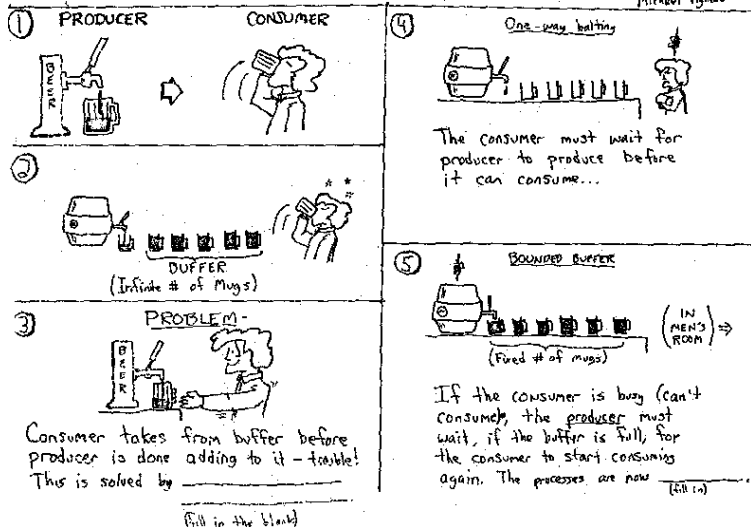 ① PRODUCER CONSUMER
BEER
②
BUFFER
(Infinite # of Mugs)
③ PROBLEM-
BEER
Consumer takes from buffer before
producer is done adding to it – trouble!
This is solved by
(fill in the blank)
Michael
④ One-way halting
The consumer must wait for
producer to produce before
it can consume...
⑤ BOUNDED BUFFER
(Fixed # of mugs)
(IN
MEN'S
ROOM) ⇒
If the consumer is busy (can't
consume), the producer must
wait, if the buffer is full, for
the consumer to start consuming
again. The processes are now
(fill in)